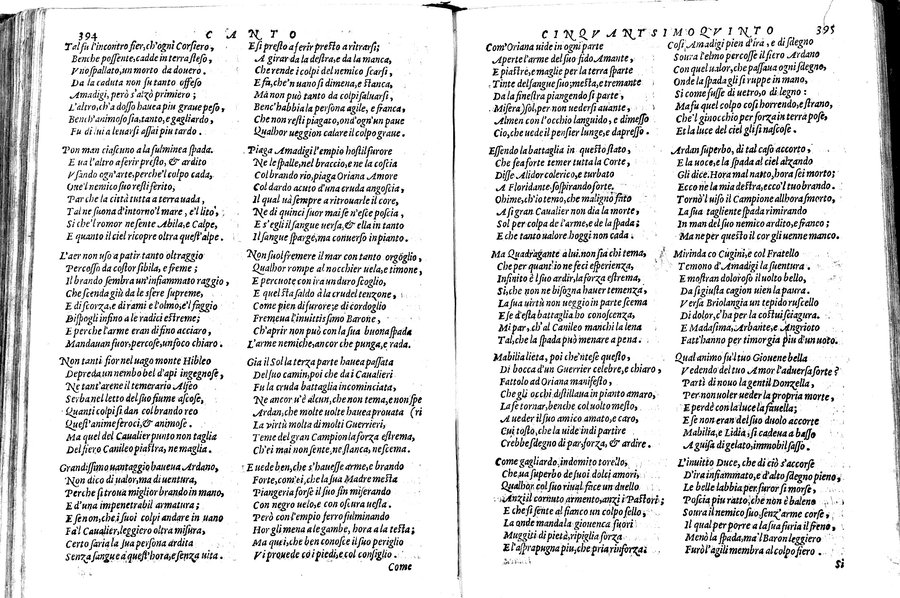 394 CANTO
Tal fu l'incontro fier, ch'ogni Corsiero,
Benche possente, cadde in terra steso,
Uno spallato, un morto da douero.
Da la caduta non fu tanto offeso
Amadigi, però s'alzò primiero;
L'altro, ch'a dosso hauea piu graue peso,
Bench'animoso sia, tanto, e gagliardo,
Fu di lui a leuarsi assai piu tardo.
Pon man ciascuno a la fulminea spada.
E ua l'altro a ferir presto, & ardito
Vsando ogn'arte, perche'l colpo cada,
One'l nemico suo resti ferito,
Par che la città tutta a terra uada,
Tal ne suona d'intorno'l mare, e'l lito,
Si che'l romor ne sente Abila, e Calpe,
E quanto il ciel ricopre oltra quest'alpe.
L'aer non uso a patir tanto oltraggio
Percosso da costor sibila, e freme;
Il brando sembra un'infiammato raggio,
Che scenda giù da le sfere supreme,
E di scorza, e di rami e l'olmo, e'l faggio
Dispogli infino a le radici estreme;
E perche l'arme eran di fino acciaro,
Mandauan fuor, percosse, un foco chiaro.
Non tanti fior nel uago monte Hibleo
Depreda un nembo bel d'api ingegnose,
Ne tant'arene il temerario Alfeo
Serba nel letto del suo fiume ascose,
Quanti colpi si dan col brando reo
Quest'anime feroci, & animose.
Ma quel del Caualier punto non taglia
Del fiero Canileo piastra, ne maglia.
Grandissimo uantaggio haueua Ardano,
Non dico di ualor, ma di uentura,
Perche si troua miglior brando in mano,
E d'una impenetrabil armatura;
E se non, che i suoi colpi andare in uano
Fa'l Caualier, leggiero oltra misura,
Certo saria la sua persona ardita
Senza sangue a quest'hora, e senza uita.
E si presto a ferir presto a ritrarsi;
A girar da la destra, e da la manca,
Che rende i colpi del nemico scarsi,
E fa, che'n uano si dimena, e stanca,
Mà non può tanto da colpi saluarsi,
Benc'habbia la persona agile, e franca,
Che non resti piagato, ond'ogn'un paue
Qualhor ueggion calare il colpo graue.
Piaga Amadigi l'empio hostil furore
Ne le spalle, nel braccio, e ne la coscia
Col brando rio, piaga Oriana Amore
Col dardo acuto d'una cruda angoscia,
Il qual uà sempre a ritrouarle il core,
Ne di quinci fuor mai se n'esce poscia,
E s'egli il sangue uersa, & ella in tanto
Il sangue sparge, ma conuerso in pianto.
Non suol fremere il mar con tanto orgoglio,
Qualhor rompe al nocchier uela, e timone,
E percuote con ira un duro scoglio,
E questa saldo a la crudel tenzone,
Come pien di furore; e di cordoglio
Fremeua l'inuittissmo Barone,
Ch'aprir non può con la sua buona spada
L'arme nemiche, ancor che punga, e rada.
Gia il Sol la terza parte hauea passata
Del suo camin, poi che dai Caualieri
Fu la cruda battaglia incominciata,
Ne ancor u'è alcun, che non tema, e non spe
Ardan, che molte uolte hauea prouata (ri
La uirtù molta di molti Guerrieri,
Teme del gran Campion la forza estrema,
Ch'ei mai non sente, ne stanca, ne scema.
E uede ben, che s'hauesse arme, e brando
Forte, com'ei, che la sua Madre mesta
Piangeria forse il suo fin miserando
Con negro uelo, e con oscura uesta.
Però con l'empio ferro fulminando
Hor gli mena a le gambe, hora a la testa;
Ma quei, che ben conosce il suo periglio
Vi prouede co i piedi, e col consiglio.
Come
CINQVANTESIMOQVINTO 395
Com'Oriana uide in ogni parte
Aperte l'arme del suo fido Amante,
E piastre, e maglie per la terra sparte
Tinte del sangue suo; mesta, e tremante
Da la finestra piangendo si parte,
Misera) sol, per non uedersi auante,
Almen con l'occhio languido, e dimesso
Cio, che uede il pensier lunge, e da presso.
Essendo la battaglia in questo stato,
Che fea forte temer tutta la Corte,
Disse Alidor colerico, e turbato
A Floridante, sospirando forte.
Ohime, ch'io temo, che malignò fato
A si gran Caualier non dia la morte,
Sol per colpa de l'arme, e de la spada;
E che tanto ualore hoggi non cada.
Ma Quadragante a lui, non sia chi tema,
Che per quant'io ne feci esperienza,
Infinito è l suo ardir, la forza estrema,
Si, che non ne bisogna hauer temenza,
La sua uirtù non ueggio in parte scema
E se d'esta battaglia ho conoscenza,
Mi par, ch'al Canileo manchi la lena
Tal, che la spada può menare a pena.
Mabilia lieta, poi che'ntese questo,
Di bocca d'un Guerrier celebre, e chiaro,
Fattolo ad Oriana manifesto,
Che gli occhi distillaua in pianto amaro,
La fe tornar, benche col uolto mesto,
A ueder il suo amico amato, e caro,
Cui tosto, che la uide indi partire
Crebbe sdegno di par, forza, & ardire.
Come gagliardo, indomito torello,
Che ueduto ha de suoi dolci amori,
Qualhor col suo riual fiece un duello
Anzi il cornuto armento, anzi i Pastori;
E che si sente al fianco un colpo fello,
La onde manda la giouenca fuori
Muggiti di pietà, ripiglia forza
E l'aspra pugna piu, che pria rinforza;
Cosi, Amadigi pien d'ira, e di sdegno
Soura l'elmo percosse il fiero Ardano
Con quel ualor, che passaua ogni segno,
Onde la spada gli si ruppe in mano,
Si come fusse di uetro, o di legno:
Ma fu quel colpo così horrendo, e strano,
Che'l ginocchio per forza in terra pose,
Et la luce del ciel gli si nascose.
Ardan superbo, di tal caso accorto,
E la uoce, e la spada al ciel alzando
Gli dice. Hora mal nato, hora sei morto;
Ecco ne la mia destra, ecco'l tuo brando.
Tornò'l uiso il Campione allhora smorto,
La sua tagliente spada rimirando
In man del suo nemico ardito, e franco;
Ma ne per questo il cor gli uenne manco.
Mirinda co Cugini, e col Fratello
Temono d'Amadigi la suentura.
E mostran doloroso il uolto bello,
Da si giusta cagion uien la paura.
Versa Briolangia un tepido ruscello
Di dolor, c'ha per la costui sciagura.
E Madasima, Arbante, e Angrioto
Fatt'hanno per timor gia piu d'un uoto.
Qual animo fu'l tuo Giouene bella
Vedendo del tuo Amor l'aduersa sorte?
Parti di nouo la gentil Donzella,
Per non uoler ueder la propria morte,
E perdè con la luce la fauella;
E se non eran del suo duolo accorte
Mabilia, e Lidia, si cadeua a basso
A guisa di gelato, immobil sasso.
L'inuitto Duce, che di ciò s'accorse
D'ira infiammato, e d'alto sdegno pieno,
Le belle labbia per furor si morse,
Poscia piu ratto, che non è baleno
Soura il nemico suo, senz'arme corse,
Il qual per porre a la sua furia il freno,
Menò la spada, ma'l Baron leggiero
Furò l'agili membra al colpo fiero.
Si